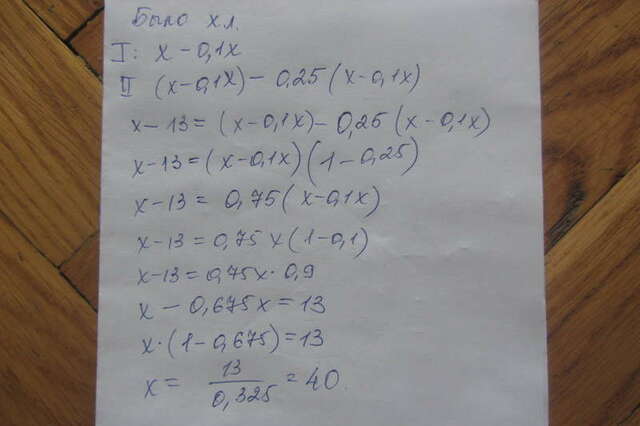 Было x л.
I: x - 0,1x
II (x-0,1x) - 0,25(x-0,1x)
x - 13 = (x-0,1x) - 0,25(x-0,1x)
x-13 = (x-0,1x)(1-0,25)
x-13 = 0,75(x-0,1x)
x-13 = 0,75x(1-0,1)
x-13 = 0,75x·0,9
x - 0,675x = 13
x·(1-0,675) = 13
x = 13/0,325 = 40.